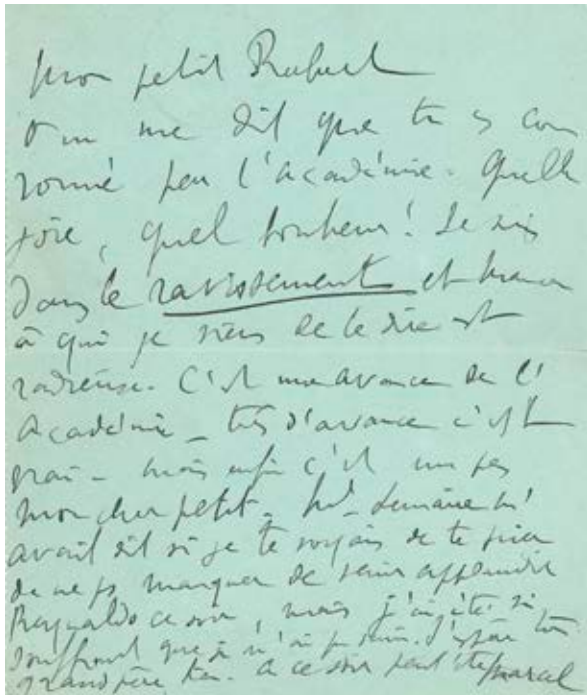 Mon petit Robert
On me dit que tu es cou
ronné par l'Académie. Quelle
joie, quel bonheur ! Je suis
dans le ravissement et maman
à qui je viens de le dire est
radieuse. C'est une avance de l'
Académie - très d'avance c'est
vrai - mais enfin c'est un pas
mon cher petit - Lemaire m'
avait dit si je te voyais de te prier
de ne pas manquer de venir
Reynaldo ce soir, mais j'ai été si
souffrant que je n'ai pu
grand père A ce soir peut'être Marcel